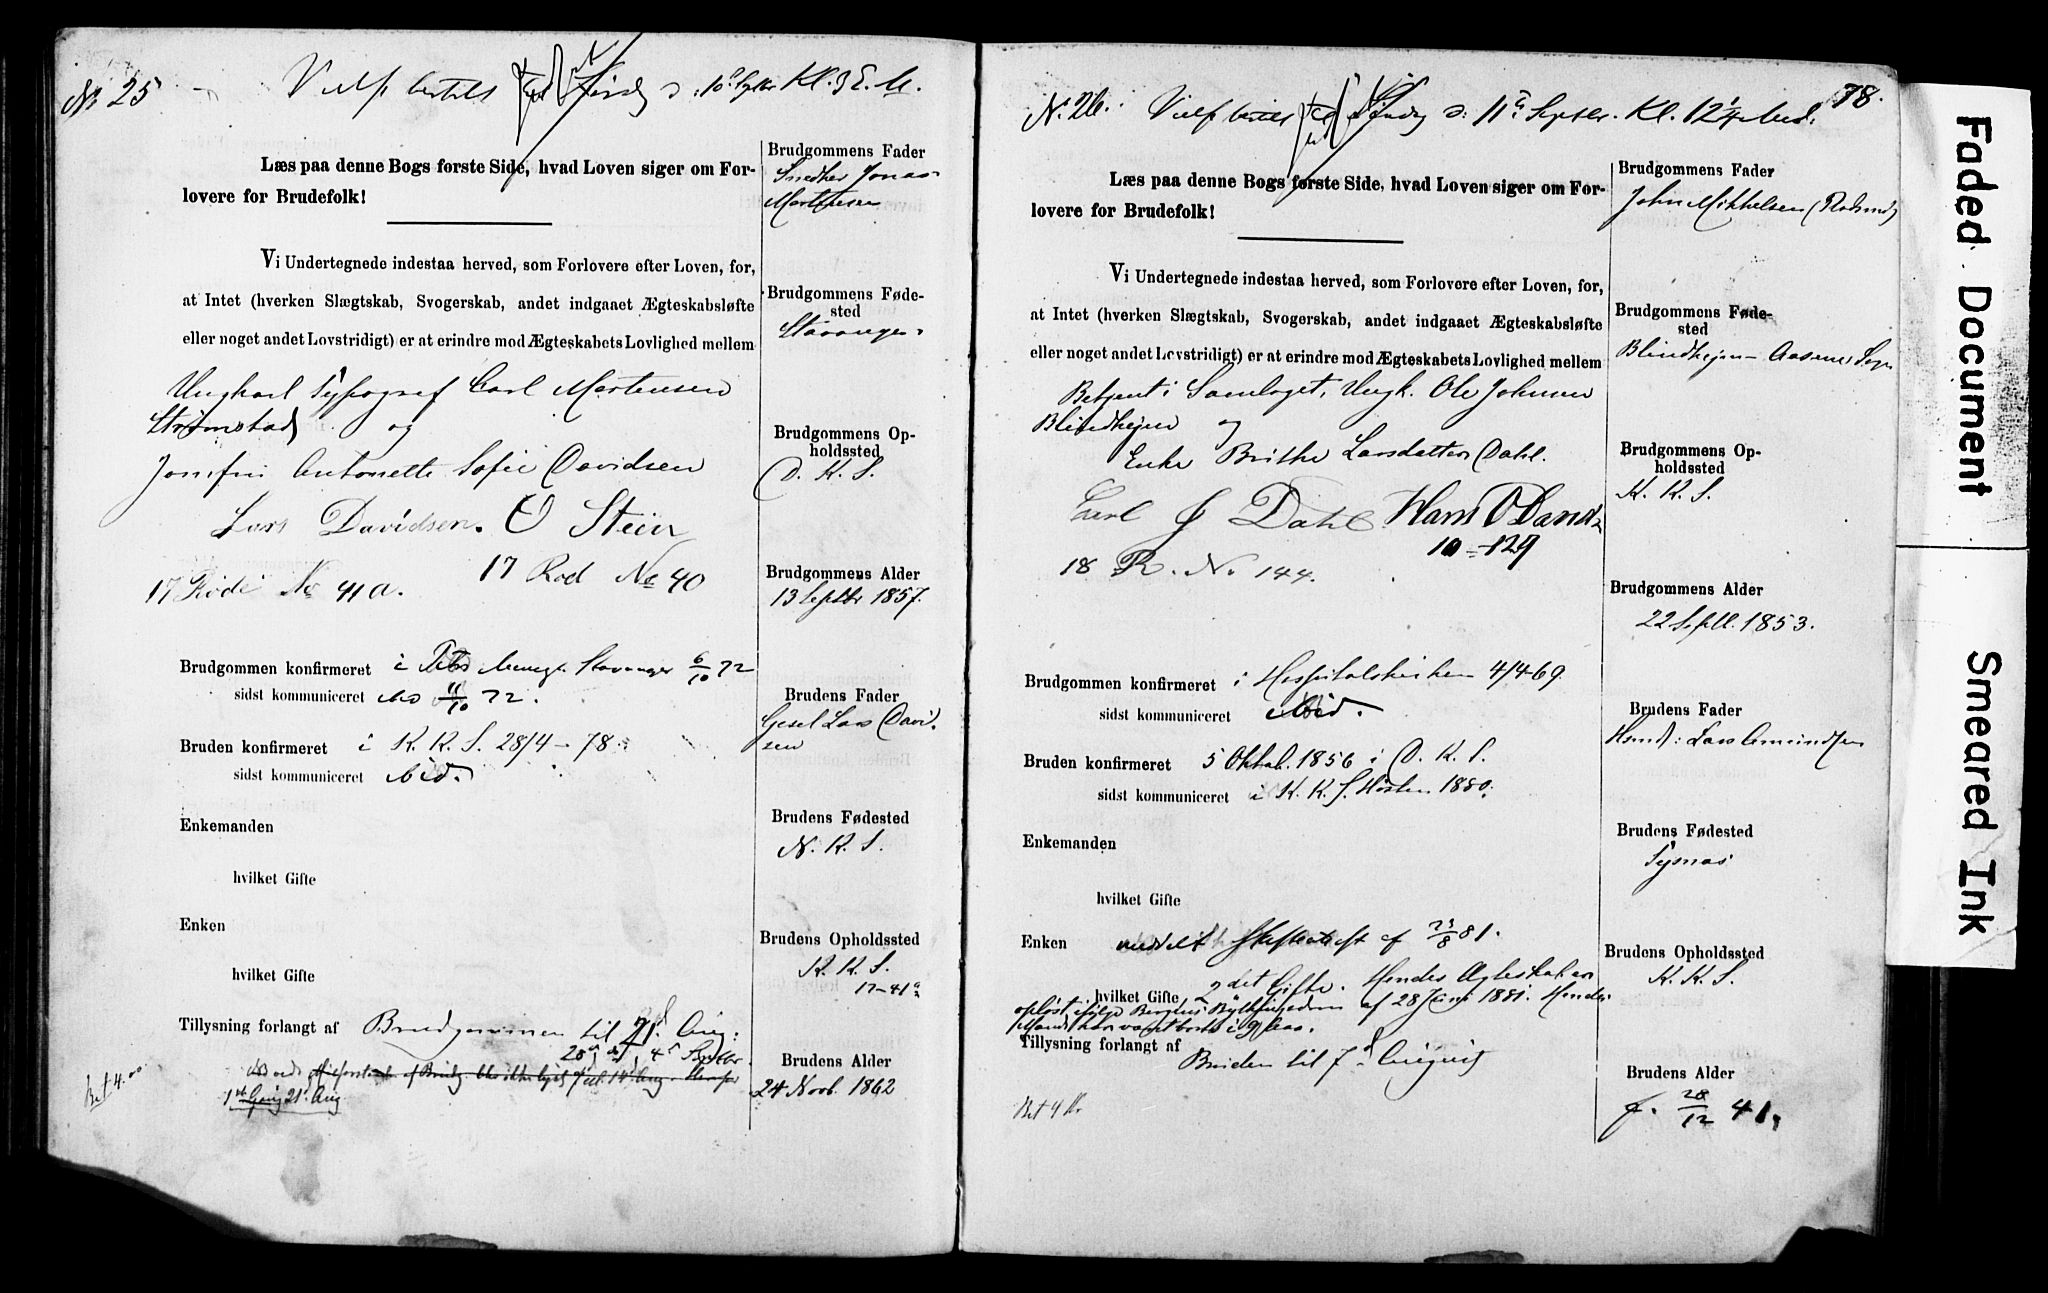 No 25
Vielse bestilt Lørdag d: 10de Septbr Kl. 3 E. M.
Læs paa denne Bogs første Side, hvad Loven siger om For-
lovere for Brudefolk!
Vi Undertegnede indestaa herved, som Forlovere efter Loven, for,
at Intet (hverken Slægtskab, Svogerskab, andet indgaaet Ægteskabsløfte
eller noget andet Lovstridigt) er at erindre mod Ægteskabets Lovlighed mellem
Ungkarl Typograf Carl Martensen
Strømstad og
Jomfru Antonette Sofie Davidsen
Lars Davidsen. O Stein
17 Rode No 41a. 17 Rod No 40
Brudgommen konfirmeret i Petri Menigh. Stavanger 6/10 72
sidst kommuniceret ibid 11/10 72.
Bruden konfirmeret i K. K. S. 28/4 - 78.
sidst kommuniceret ibid.
Enkemanden
hvilket Gifte
Enken
hvilket Gifte
Tillysning forlangt af Brudgommen til 21d Aug.
28de, 4de Septbr.
1ste Gang 21. Aug
Bet 4.00
Brudgommens Fader
Snedker Jonas
Martensen
Brudgommens Føde-
sted
Stavanger
Brudgommens Op-
holdssted
D. K. S.
Brudgommens Alder
13 Septbr 1857.
Brudens Fader
Gesel Lars Davi-
sen
Brudens Fødested
N. K. S.
Brudens Opholdssted
K. K. S.
17-41a
Brudens Alder
24 Novb. 1862
78.
No. 26. Vielse bestilt Søndag d: 11te Septbr. Kl. 12 1/4 Md.
Læs paa denne Bogs første Side, hvad Loven siger om For-
lovere for Brudefolk!
Vi Undertegnede indestaa herved, som Forlovere efter Loven, for,
at Intet (hverken Slægtskab, Svogerskab, andet indgaaet Ægteskabsløfte
eller noget andet Lovstridigt) er at erindre mod Ægteskabets Lovlighed mellem
Betjent i Samlaget, Ungk. Ole Johnsen
Blindhejm og
Enke Brithe Larsdatter Dahl.
Carl J Dahl Hans O Davids
10-129
18 R. No 144.
Brudgommen konfirmeret i Hospitalskirken 4/4 69.
sidst kommuniceret ibid.
Bruden konfirmeret 5 Oktob. 1856 i D. K. S.
sidst kommuniceret i K. K. S. Høsten 1880.
Enkemanden
hvilket Gifte
Enken meddelt Skifteattest af 23/8 81.
hvilket Gifte 2det Gifte. Hendes Ægteskab er
opløst ifølge Bergens Bythingsdom af 28 Juni 1881. Hendes
Mand har været borte i 9 Aar.
Tillysning forlangt af
Bruden til 7d August
Bet 4 Kr
Brudgommens Fader
John Mikkelsen
Brudgommens Føde-
sted
Blindhejm Aasene Sogn
Brudgommens Op-
holdssted
K. K. S.
Brudgommens Alder
22 Septb. 1853.
Brudens Fader
Hmd: Lars Amundsen
Brudens Fødested
Sysnæs
Brudens Opholdssted
K. K. S.
Brudens Alder
f. 28/12 41.
Faded Document
Smeared Ink